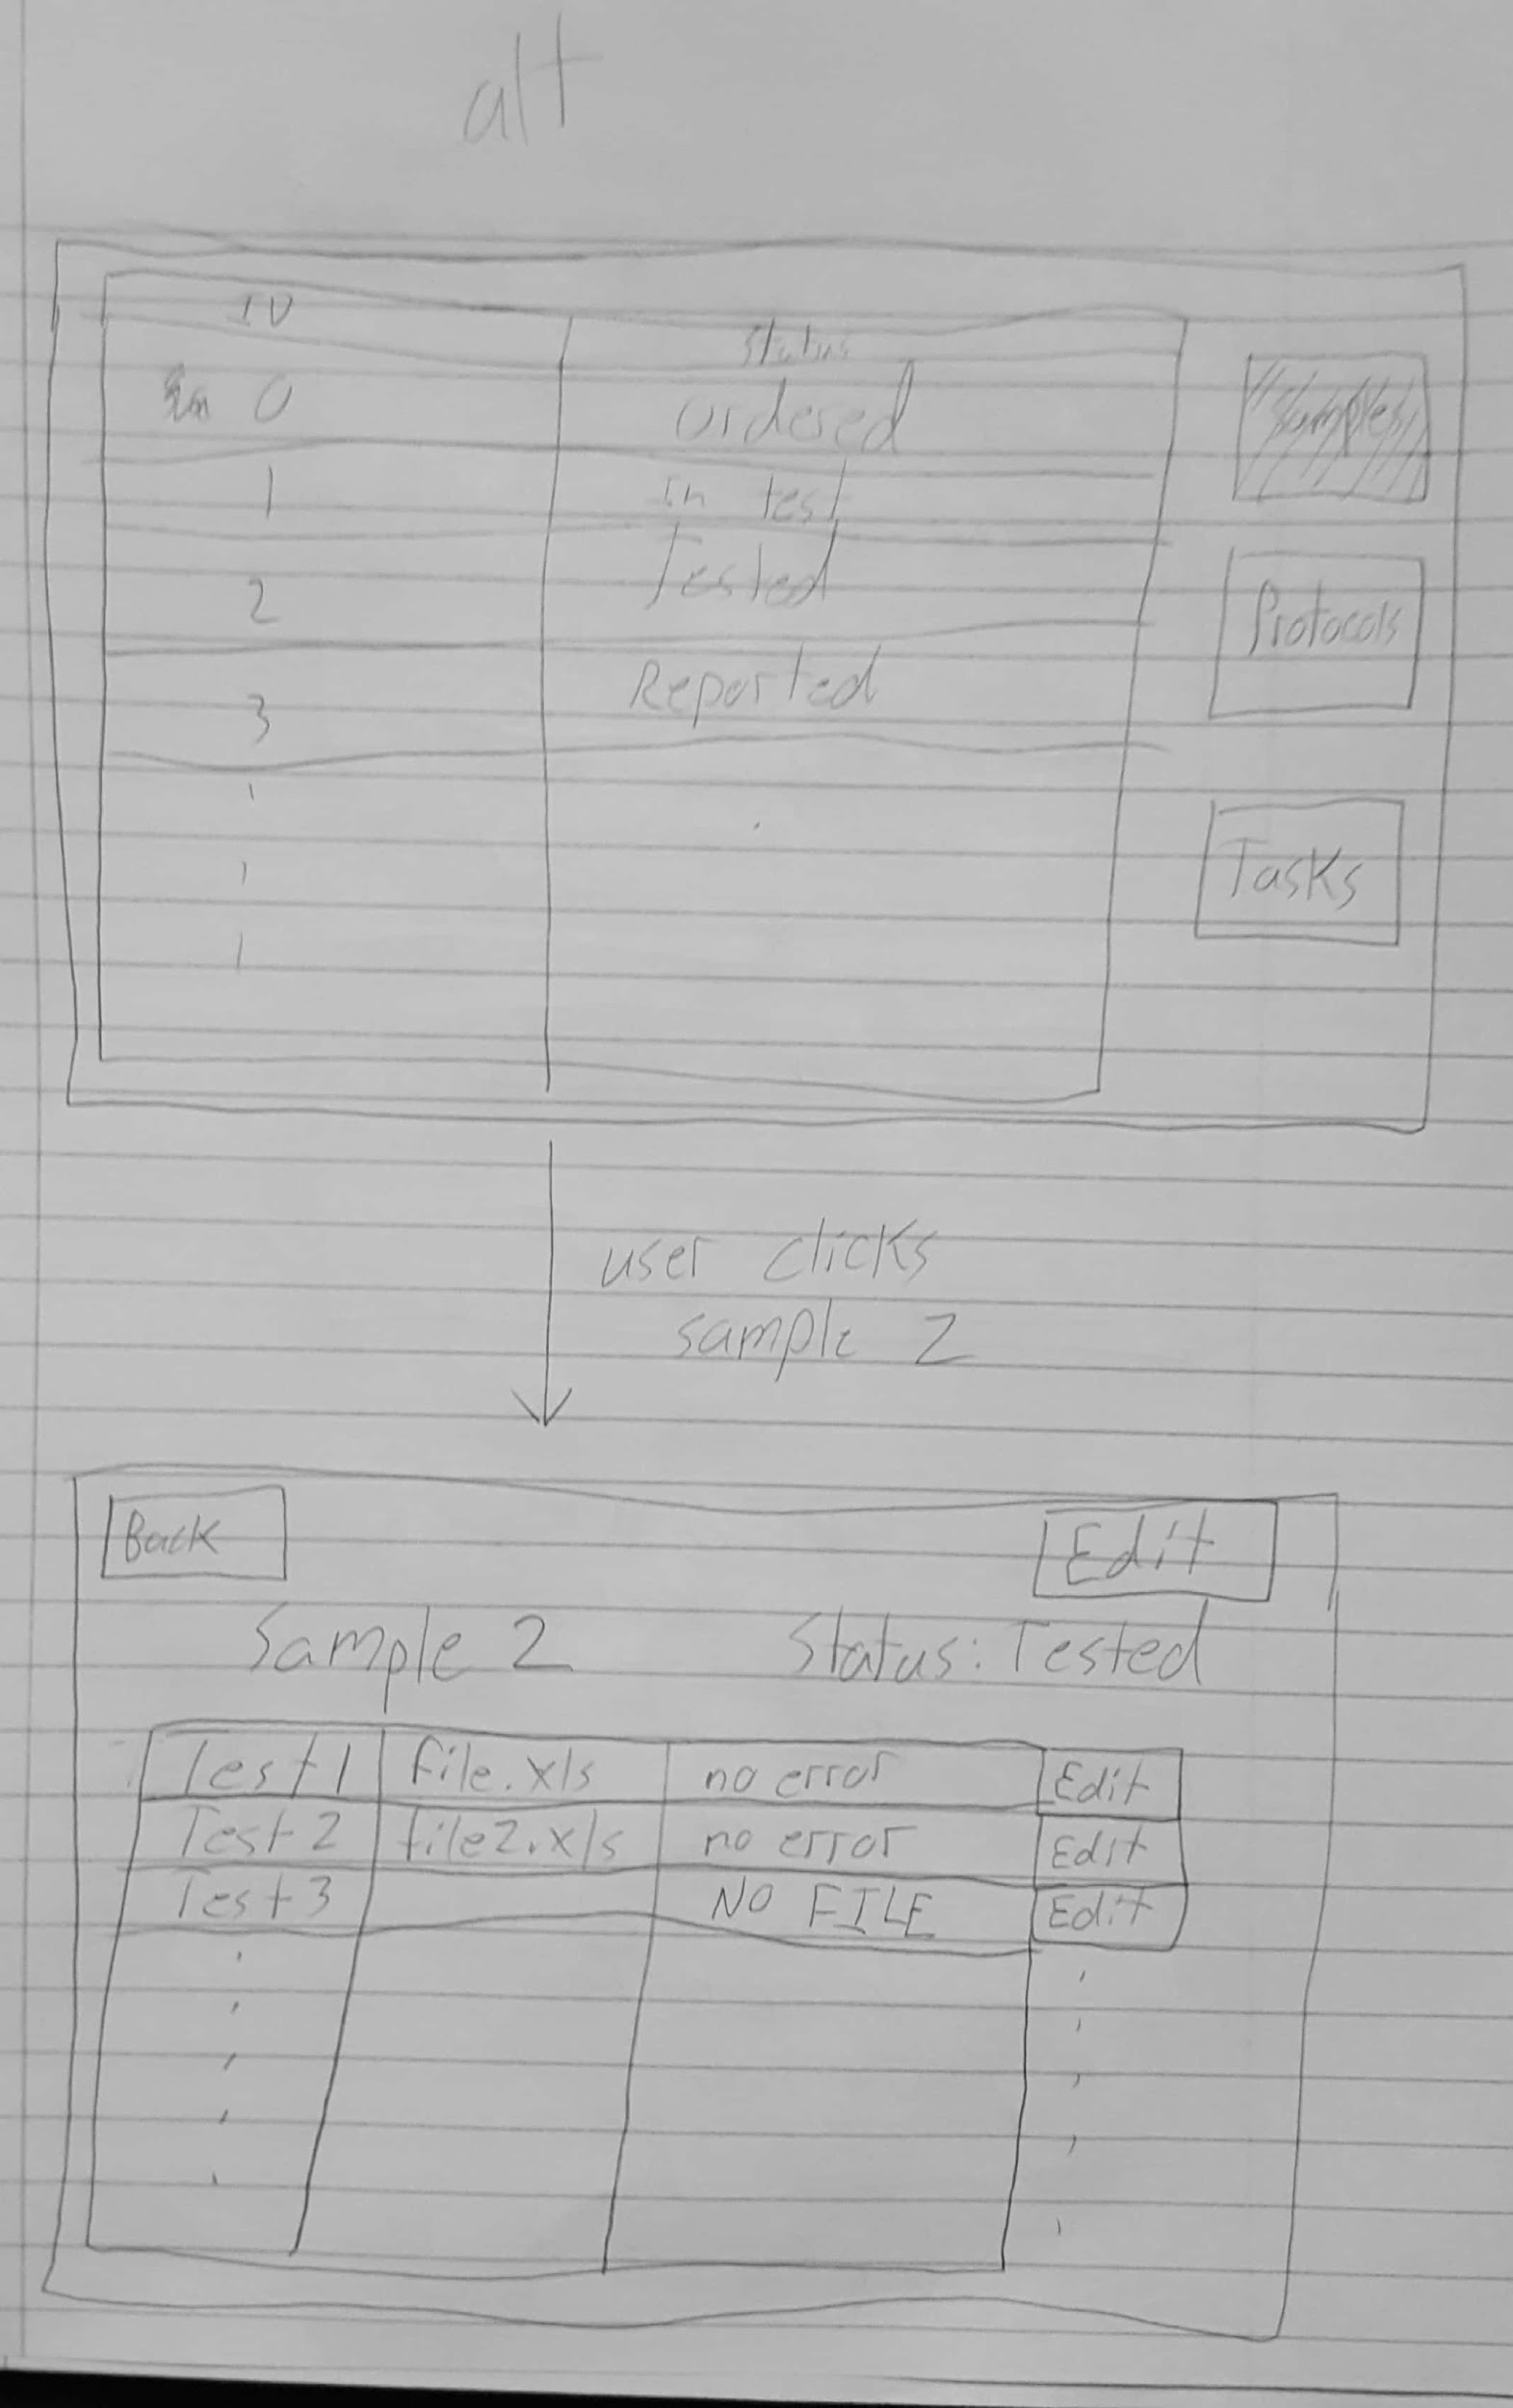 alt
ID Status
0 ordered
Samples
1 in test
2 Tested
Protocols
3 Reported
Tasks
user clicks
sample 2
Back Edit
Sample 2 Status: Tested
Test 1 file.xls no error Edit
Test 2 file2.xls no error Edit
Test 3 NO FILE Edit